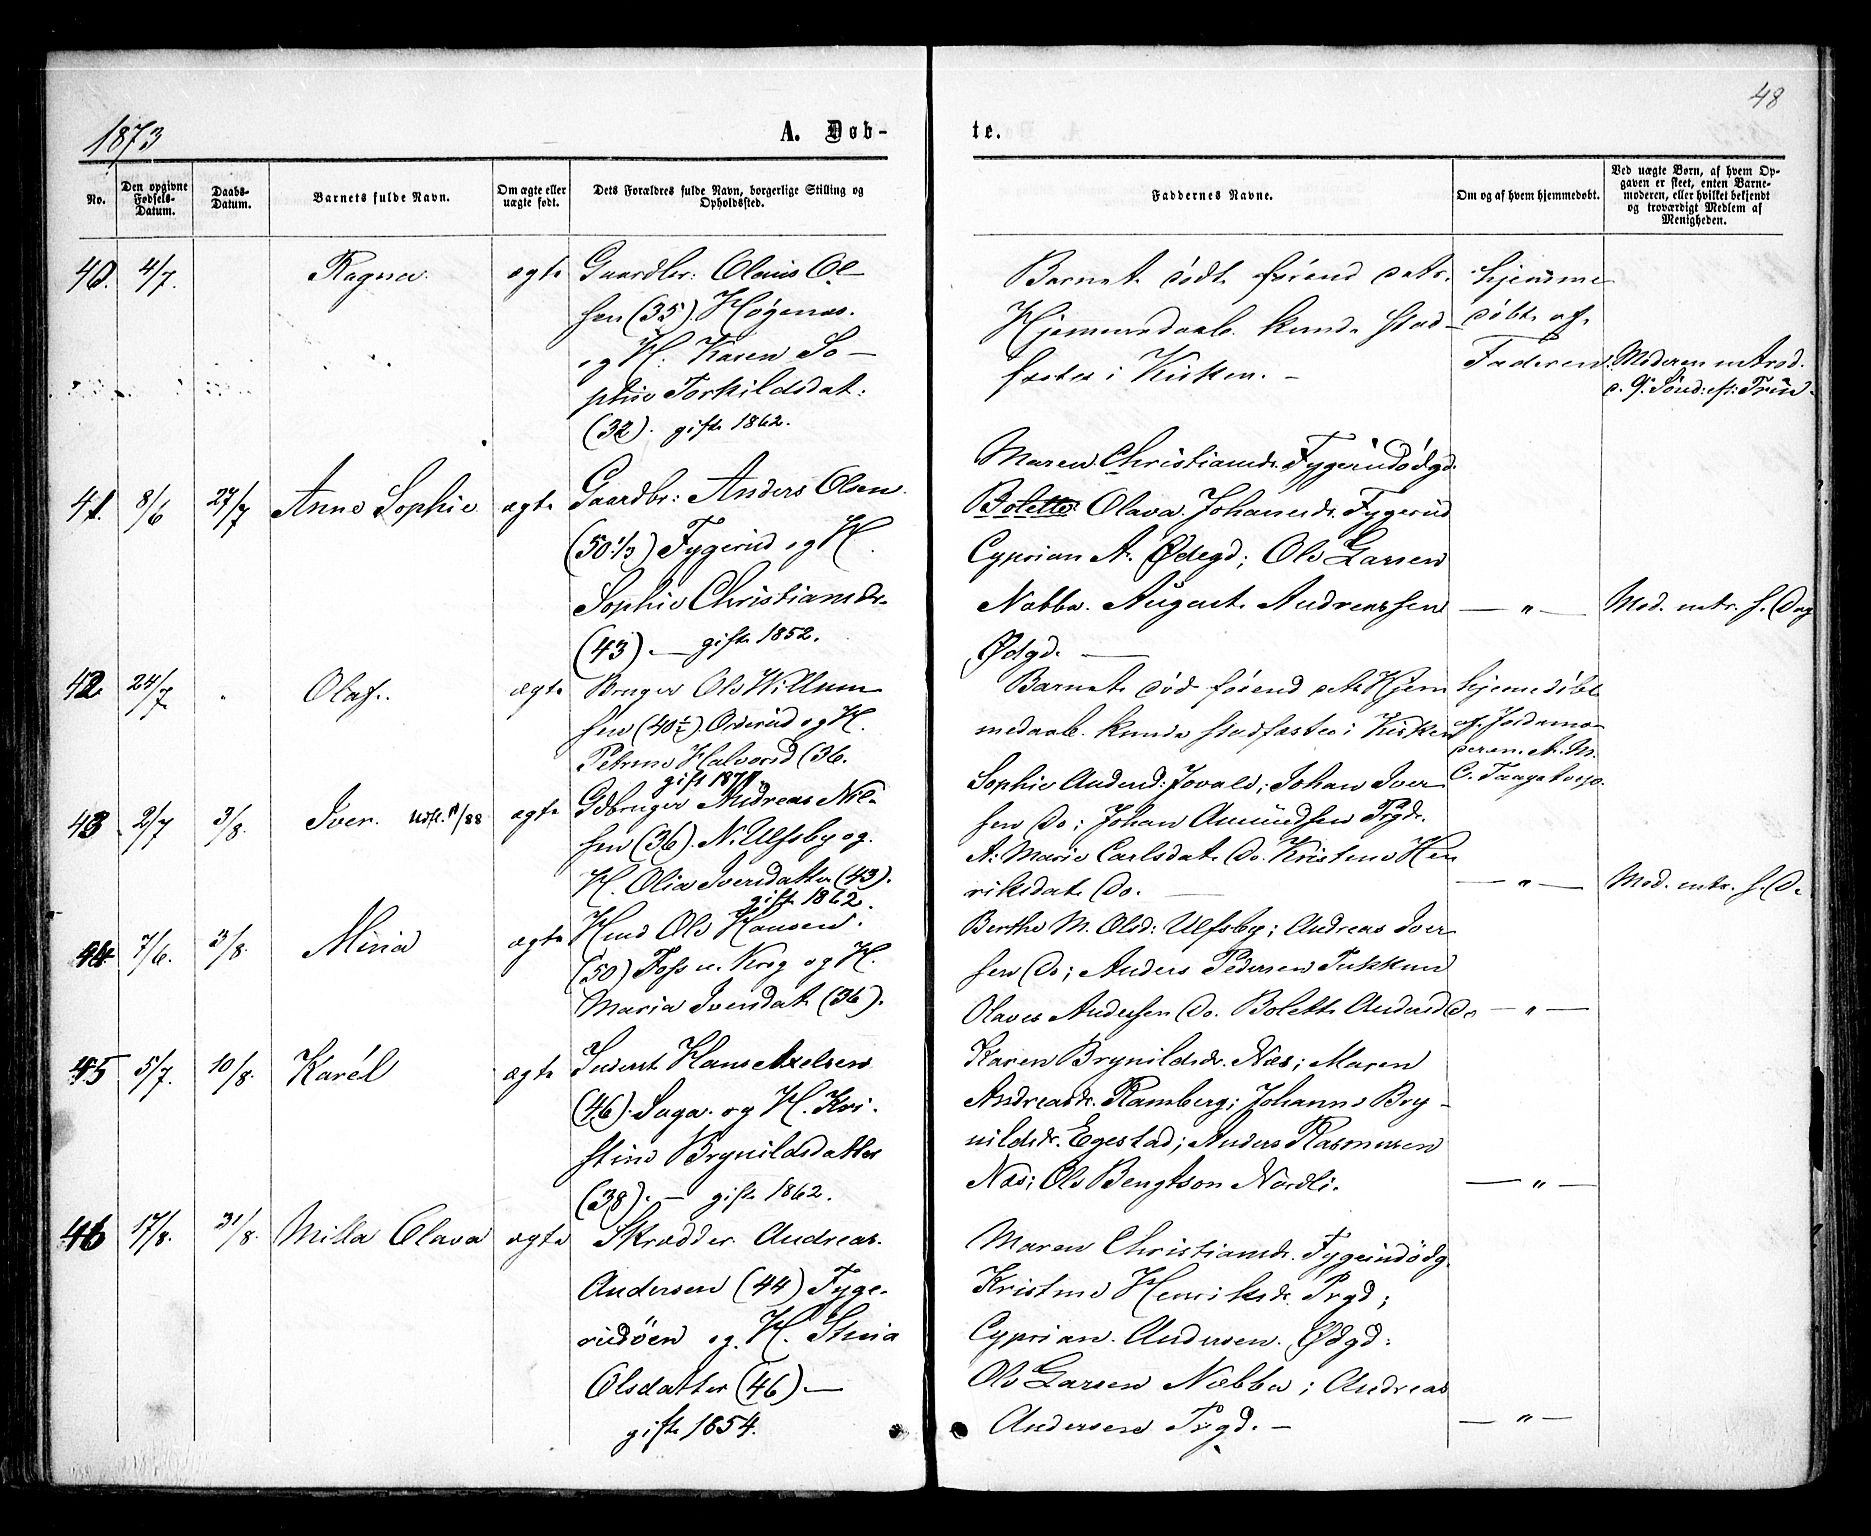 48
1873
A. Døb-
te.
No.
Den opgivne Fødsels-Datum.
Daabs-Datum.
Barnets fulde Navn.
Om ægte eller uægte født.
Dets Forældres fulde Navn, borgerlige Stilling og Opholdssted.
Faddernes Navne.
Om og af hvem hjemmedøbt.
Ved uægte Børn, af hvem Op-
gaven er skeet, enten Barne-
moderen, eller hvilket bekjendt
og troværdigt Medlem af
Menigheden.
40. 4/7. Ragna. ægte Gaardbr: Olaus Ol-
sen (35). Høgenæs.
og H. Karen So-
phie Torkildsdat:
(32). gift 1862.
Barnet døde førend dets
Hjemmedaab kunde stad-
fæstes i Kirken. -
Hjemme
døbt af
Faderen.
Moderen introd.
41. 8/6 27/7 Anne Sophie ægte Gaardbr: Anders Olsen
(50 1/3) Tygerud og H.
Sophie Christiansdr.
(43). — gift 1852.
Maren Christiansdr. Tygerudødgd.
Bolette Olava Johannesdr. Tygerud
Cyprian A. Ødegd; Ole Larsen
Nabba. August Andreassen
Ødgd. —
— " —
Mod. intr. s. Dag
42. 24/7 Olaf. ægte Bruger Ole Willum
sen (40 1/2) Orderud og H.
Petrine Halvorsd (36.
gift 1871
Barnet død førend dets Hjem
medaab kunde stadfæstes i Kirken
hjemedøbt
af Jordemo-
deren
43 2/7 3/8. Iver. Udfl. /88 ægte Gdbruger Andreas Nil-
sen (36). N. Ulfsby og
H. Olia Iversdatter (43).
gift 1862.
Sophie Andersd: Jovald; Johan Iver
sen Do; Johan Amundsen Pgd.
A: Marie Carlsdat. Do. Kristine Hen
riksdat Do. —
— " —
Mod. intr. s. D.
44 7/6. 3/8. Mina ægte Hmd Ole Hansen.
(50) Foss u. Krog og H.
Maria Svendat (36).
Berthe M. Olsd: Ulfsby; Andreas Iver
sen Do; Anders Pedersen Tukkun
Olaves Andersen Do. Bolette Andersd Do
— " —
45 5/7. 10/8. Karél ægte Inderst Hans Axelsen
(46). Saga. og H. Kri-
stine Brynildsdatter
(38). — gift 1862.
Karen Brynildsdr. Næs; Maren
Andreasdr. Ramberg; Johanne Bry-
nildsdr. Egestad; Anders Rasmussen
Næs; Ole Bengtson Nordli.
— " —
46 17/8. 31/8. Milla Olava ægte Skrædder Andreas
Andersen (44) Tyge-
rudöen og H. Stina
Olsdatter (46) —
gift 1854.
Maren Christiansdr. Tygerudödg.
Kristine Henriksdr. Prgd;
Cyprian Andersen Ødgd:
Ole Larsen Næbba; Andreas
Andersen Prgd. —
— " —